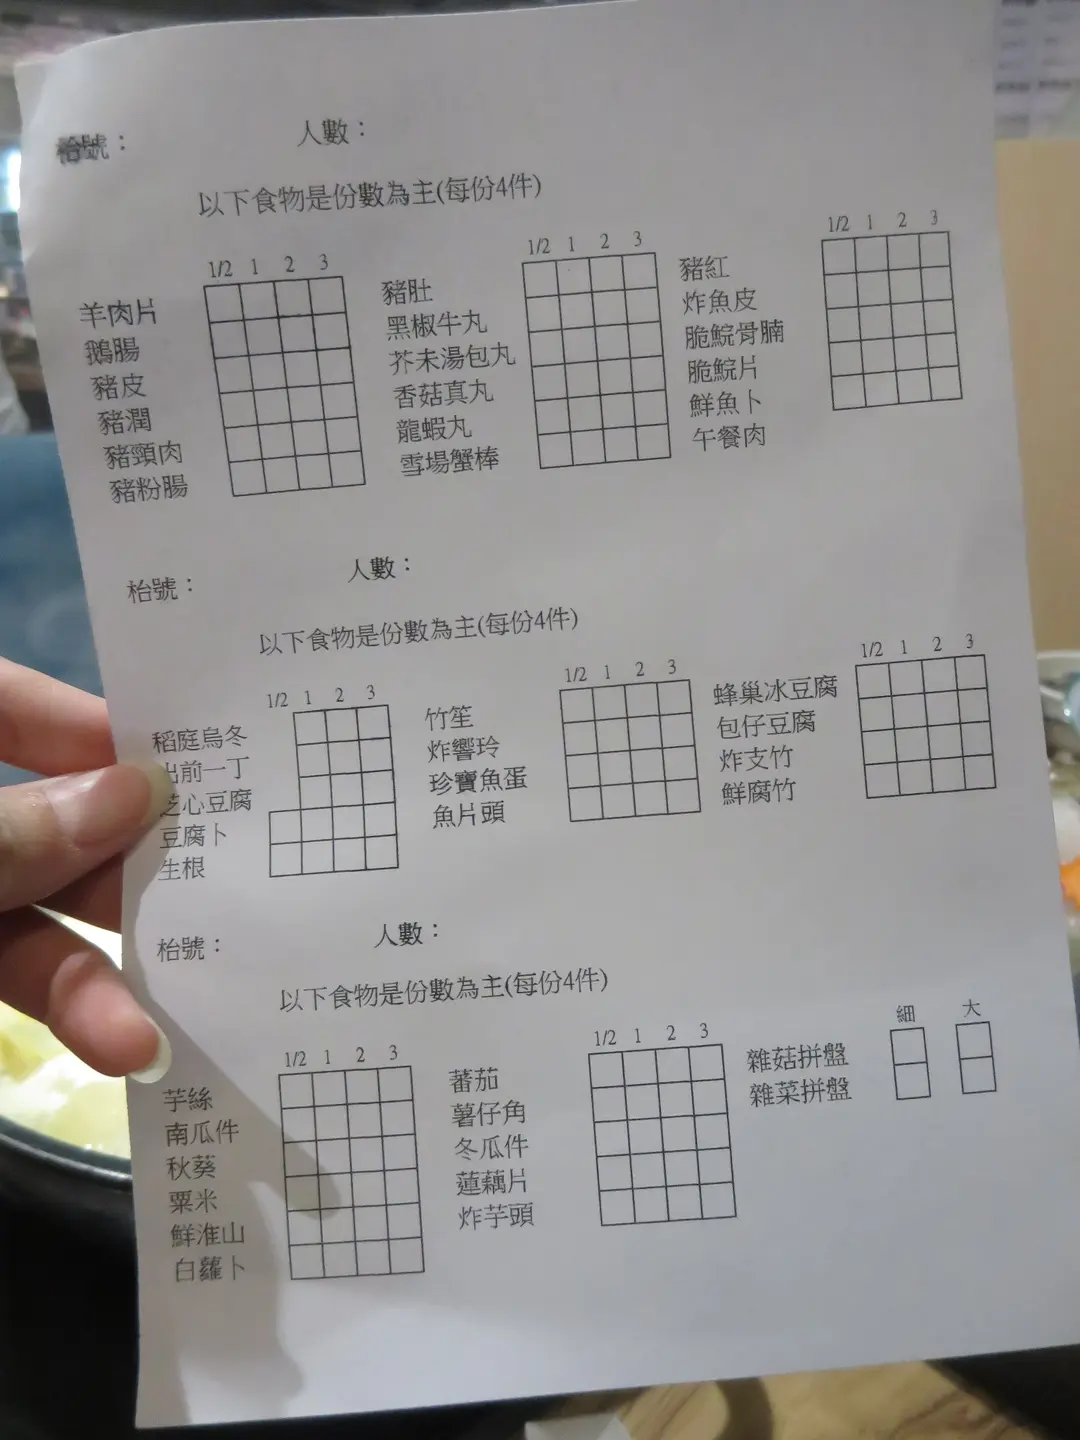 枱號： 人數：
以下食物是份數為主(每份4件)
1/2 1 2 3
羊肉片
鵝腸
豬皮
豬潤
豬頸肉
豬粉腸
1/2 1 2 3
豬肚
黑椒牛丸
芥未湯包丸
香菇真丸
龍蝦丸
雪場蟹棒
1/2 1 2 3
豬紅
炸魚皮
脆鯇骨腩
脆鯇片
鮮魚卜
午餐肉
枱號： 人數：
以下食物是份數為主(每份4件)
1/2 1 2 3
稻庭烏冬
出前一丁
芝心豆腐
豆腐卜
生根
1/2 1 2 3
竹笙
炸響玲
珍寶魚蛋
魚片頭
1/2 1 2 3
蜂巢冰豆腐
包仔豆腐
炸支竹
鮮腐竹
枱號： 人數：
以下食物是份數為主(每份4件)
1/2 1 2 3
芋絲
南瓜件
秋葵
粟米
鮮淮山
白蘿卜
1/2 1 2 3
蕃茄
薯仔角
冬瓜件
蓮藕片
炸芋頭
細 大
雜菇拼盤
雜菜拼盤